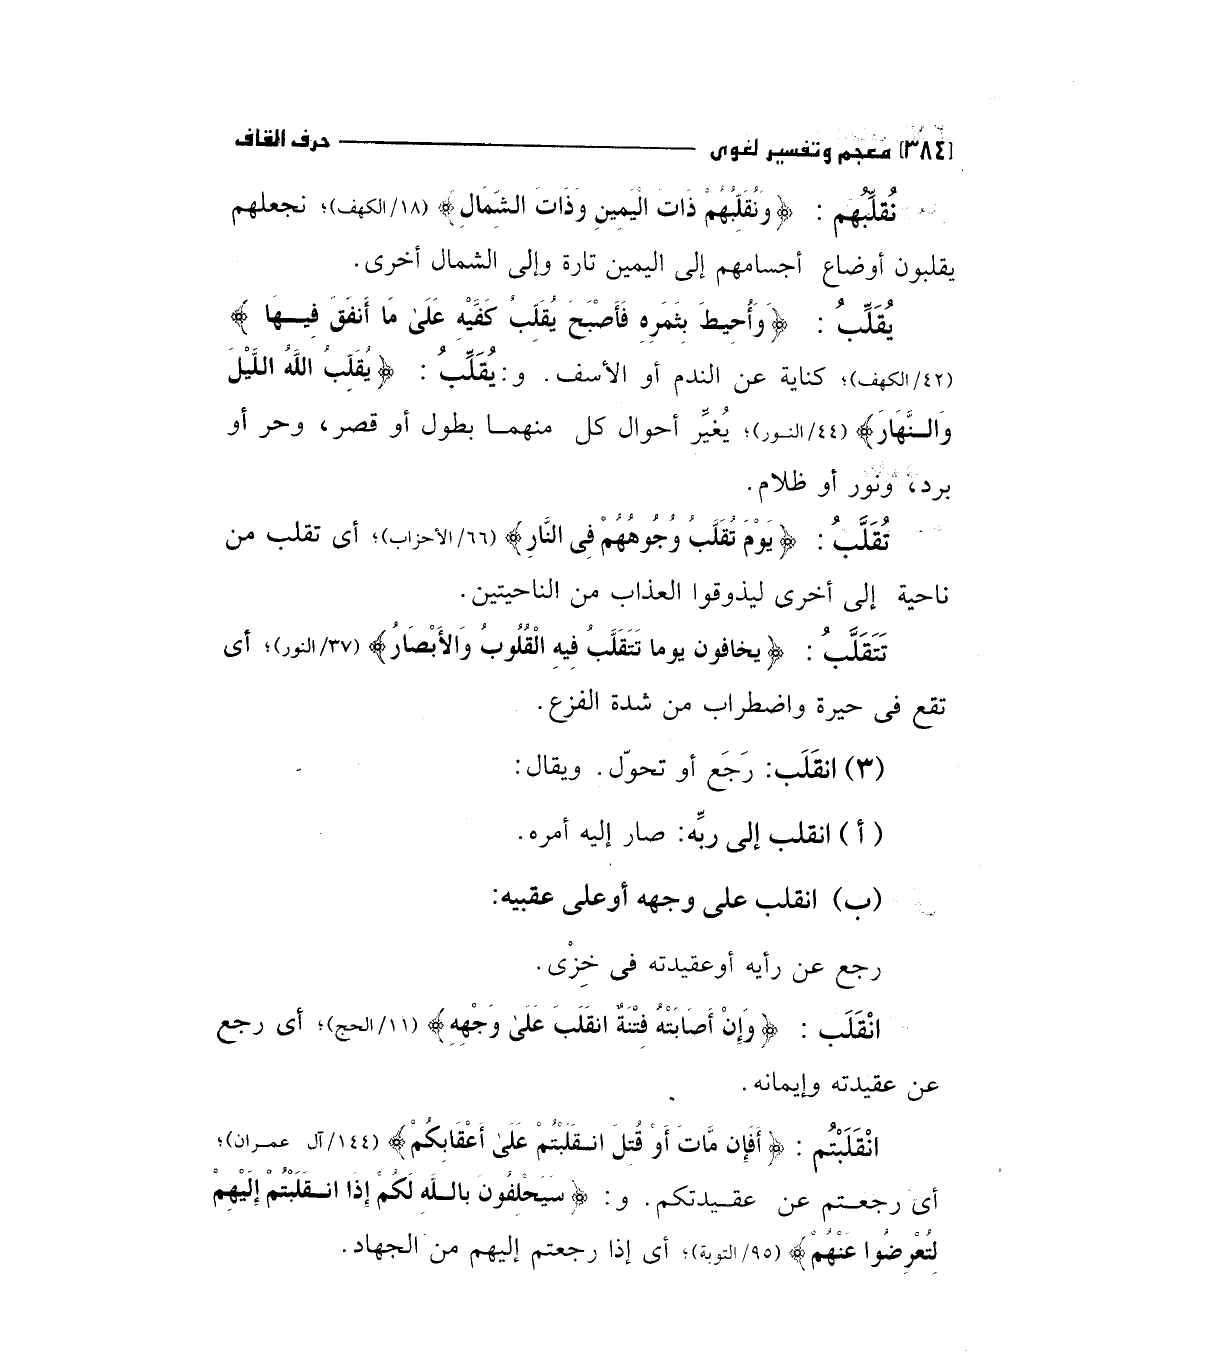 [٣٨٤] معجم وتفسير لغوى حرف القاف
نُقلِّبُهم : ﴿وَنُقَلِّبُهُمْ ذَاتَ الْيَمِينِ وَذَاتَ الشِّمَالِ﴾ (١٨/الكهف)؛ نجعلهم
يقلبون أوضاع أجسامهم إلى اليمين تارة وإلى الشمال أخرى.
يُقَلِّبُ : ﴿وَأُحِيطَ بِثَمَرِهِ فَأَصْبَحَ يُقَلِّبُ كَفَّيْهِ عَلَىٰ مَا أَنفَقَ فِيهَا ﴾
(٤٢/الكهف)؛ كناية عن الندم أو الأسف. و:يُقَلِّبُ : ﴿يُقَلِّبُ اللَّهُ اللَّيْلَ
وَالنَّهَارَ﴾ (٤٤/النور)؛ يُغيِّر أحوال كل منهما بطول أو قصر، وحر أو
برد، ونور أو ظلام.
تُقَلَّبُ : ﴿يَوْمَ تُقَلَّبُ وُجُوهُهُمْ فِى النَّارِ﴾ (٦٦/الأحزاب)؛ أى تقلب من
ناحية إلى أخرى ليذوقوا العذاب من الناحيتين.
تَتَقَلَّبُ : ﴿يخافون يوما تَتَقَلَّبُ فِيهِ الْقُلُوبُ وَالأَبْصَارُ﴾ (٣٧/النور)؛ أى
تقع فى حيرة واضطراب من شدة الفزع.
(٣) انقَلَب: رَجَع أو تحوّل. ويقال:
(أ) انقلب إلى ربِّه: صار إليه أمره.
(ب) انقلب على وجهه أوعلى عقبيه:
رجع عن رأيه أوعقيدته فى خِزْى.
انْقَلَب : ﴿وَإِنْ أَصَابَتْهُ فِتْنَةٌ انقَلَبَ عَلَىٰ وَجْهِهِ﴾ (١١/الحج)؛ أى رجع
عن عقيدته وإيمانه.
انْقَلَبْتُم : ﴿أَفَإِن مَّاتَ أَوْ قُتِلَ انقَلَبْتُمْ عَلَىٰ أَعْقَابِكُمْ﴾ (١٤٤/آل عمران)؛
أى رجعتم عن عقيدتكم. و: ﴿سَيَحْلِفُونَ بِاللَّهِ لَكُمْ إِذَا انقَلَبْتُمْ إِلَيْهِمْ
لِتُعْرِضُوا عَنْهُمْ﴾ (٩٥/التوبة)؛ أى إذا رجعتم إليهم من الجهاد.